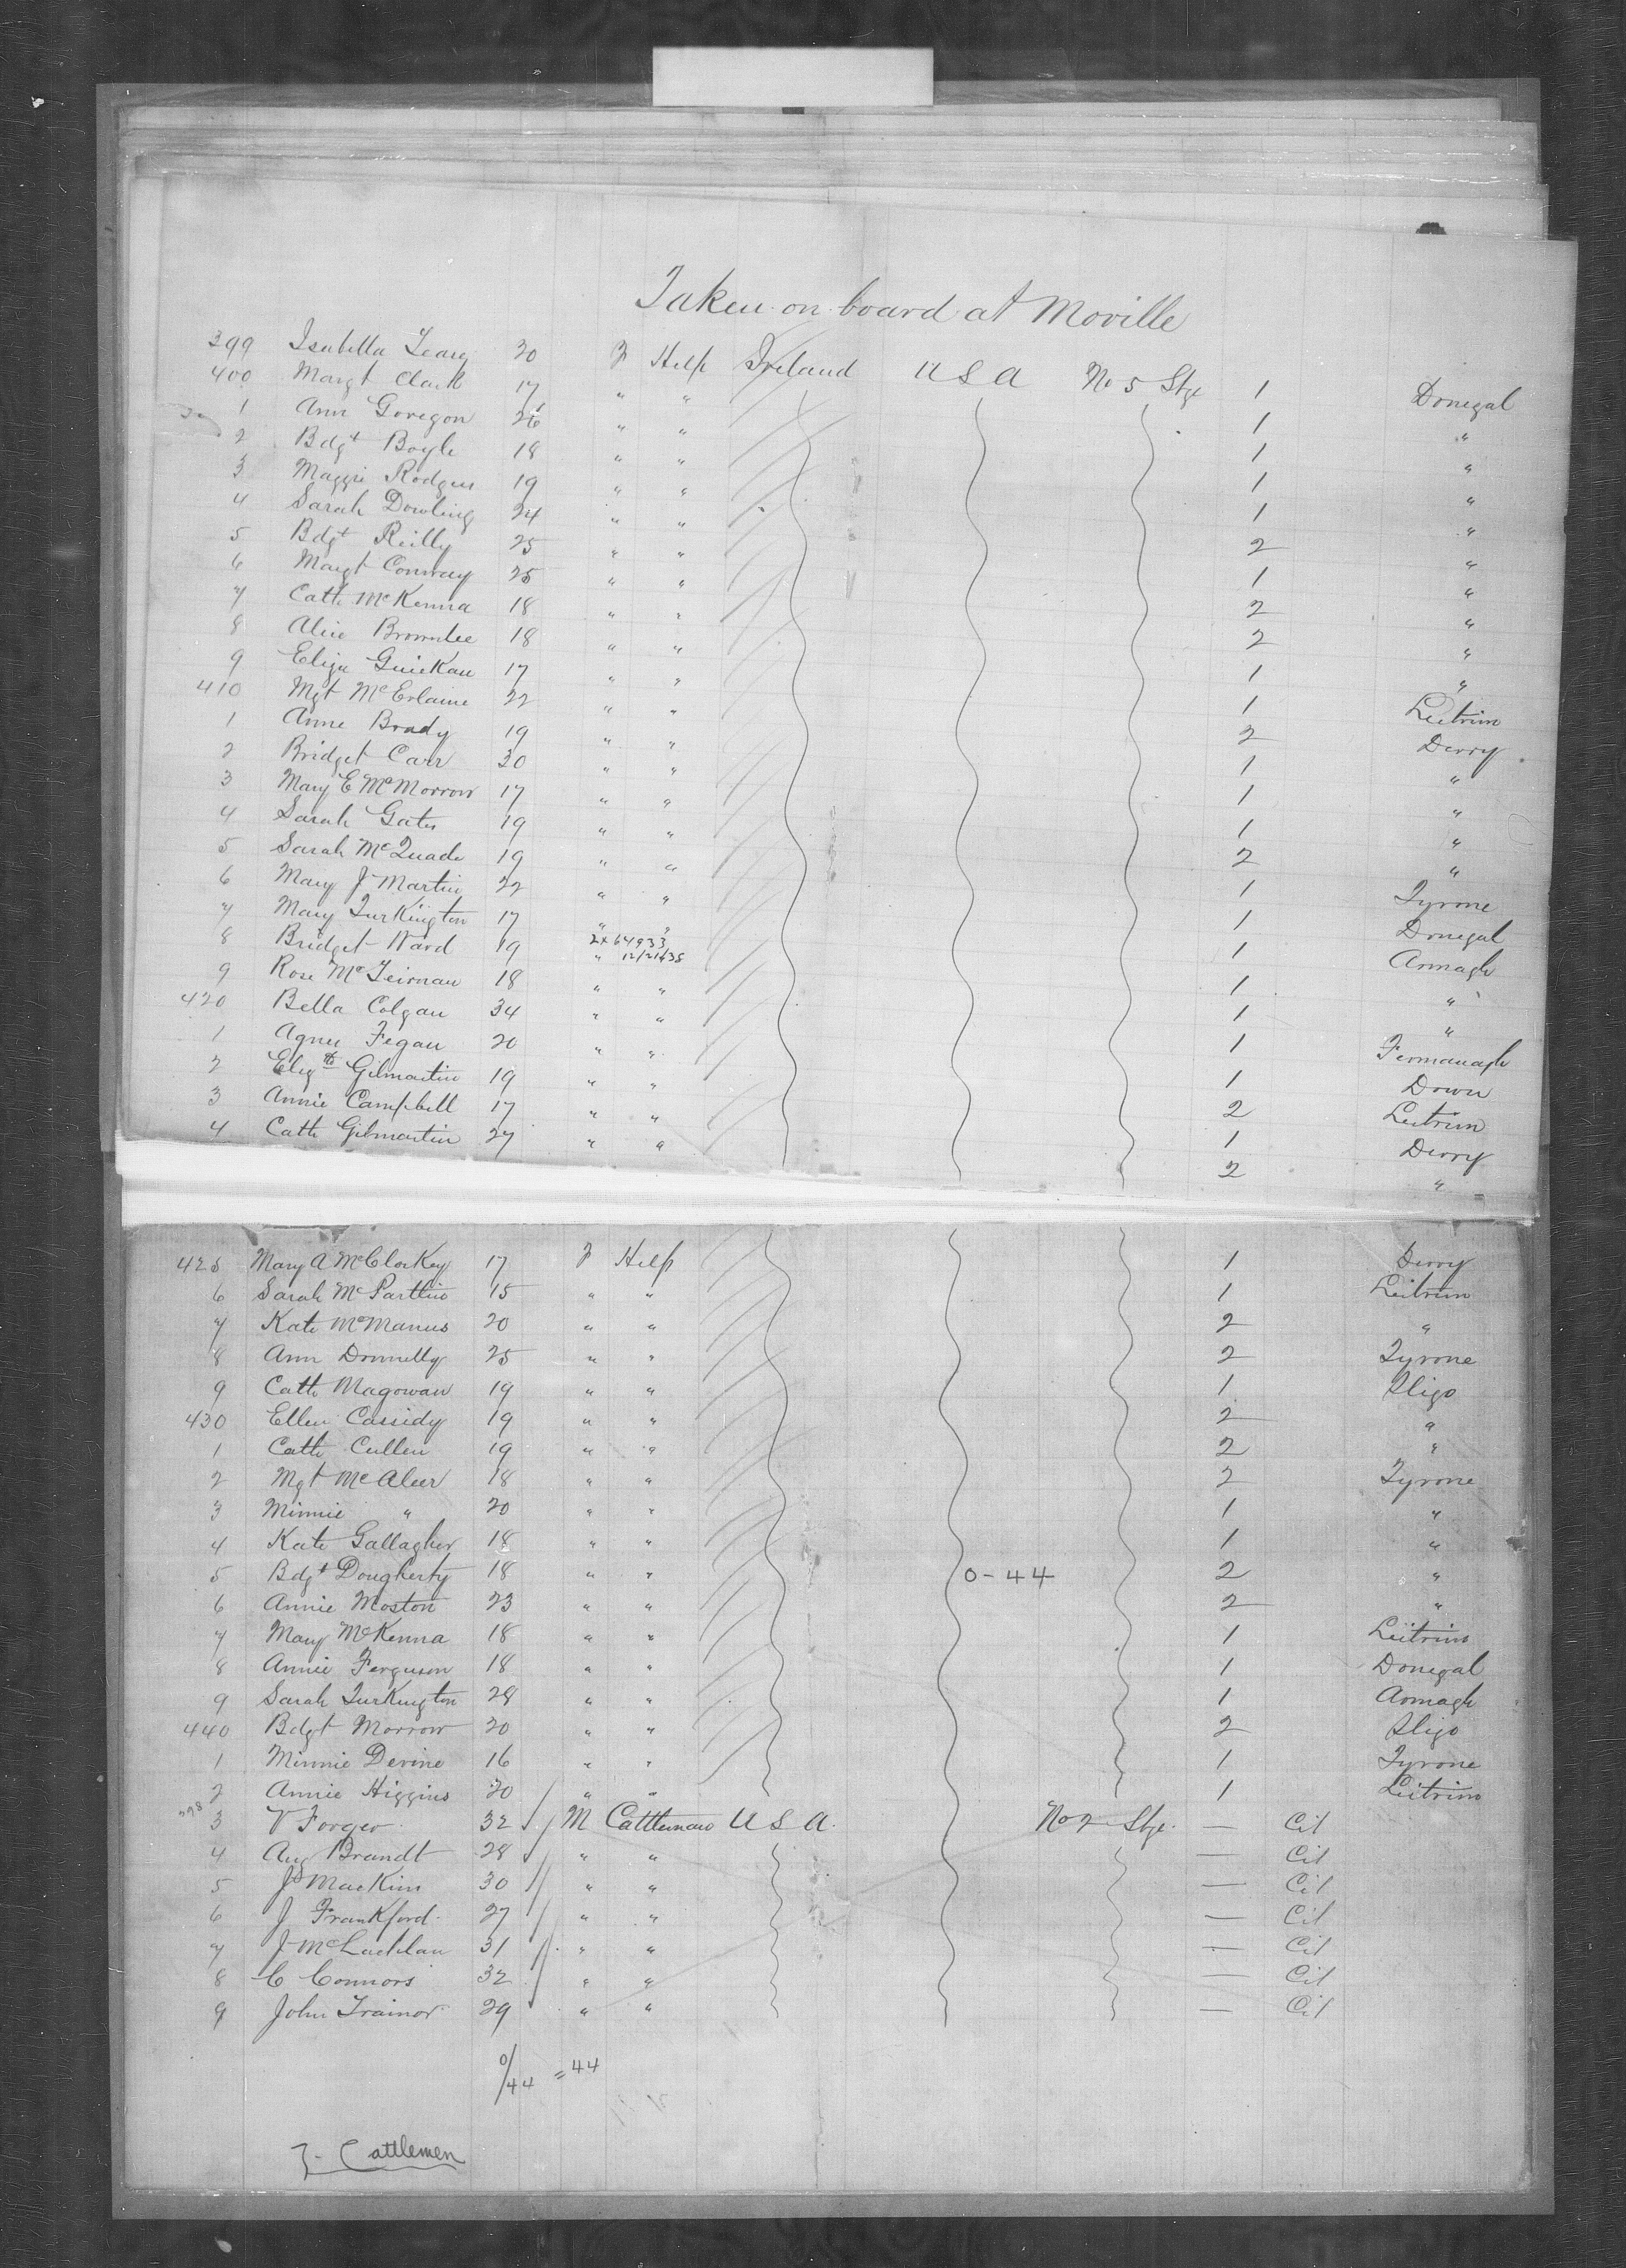 Taken on board at Moville
399 Isabella Leary 20 F Help Ireland U S A No 5 Stge 1 Donegal
400 Margt Clark 17 " " 1 "
1 Ann Goregon 26 " " 1 "
2 Bdgt Boyle 18 " " 1 "
3 Maggie Rodgers 19 " " 1 "
4 Sarah Dowling 24 " " 2 "
5 Bdgt Reilly 25 " " 1 "
6 Margt Conway 25 " " 2 "
7 Cath McKenna 18 " " 2 "
8 Alice Brownlee 18 " " 1 "
9 Eliza Guickan 17 " " 1 Leitrim
410 Mgt McErlaine 22 " " 2 Derry
1 Anne Brady 19 " " 1 "
2 Bridget Carr 30 " " 1 "
3 Mary E McMorrow 17 " " 1 "
4 Sarah Gates 19 " " 2 "
5 Sarah McQuade 19 " " 1 Tyrone
6 Mary J Martin 22 " " 1 Donegal
7 Mary Turkington 17 " " 1 Armagh
2x64933
8 Bridget Ward 19 " 12/21/38 1 "
9 Rose McTeirnan 18 " " 1 "
420 Bella Colgan 34 " " 1 Fermanagh
1 Agnes Fegan 20 " " 1 Down
2 Elizth Gilmartin 19 " " 2 Leitrim
3 Annie Campbell 17 " " 1 Derry
4 Cath Gilmartin 27 " " 2 "
425 Mary A McCloskey 17 F Help 1 Derry
6 Sarah McPartlin 15 " " 1 Leitrim
7 Kate McManus 20 " " 2 "
8 Ann Donnelly 25 " " 2 Tyrone
9 Cath Magowan 19 " " 1 Sligo
430 Ellen Cassidy 19 " " 2 "
1 Cath Cullen 19 " " 2 "
2 Mgt McAleer 18 " " 2 Tyrone
3 Minnie " 20 " " 1 "
4 Kate Gallagher 18 " " 1 "
5 Bdgt Dougherty 18 " " 0-44 2 "
6 Annie Moston 23 " " 2 "
7 Mary McKenna 18 " " 1 Leitrim
8 Annie Ferguson 18 " " 1 Donegal
9 Sarah Turkington 28 " " 1 Armagh
440 Bdgt Morrow 20 " " 2 Sligo
1 Minnie Devine 16 " " 1 Tyrone
2 Annie Higgins 20 " " 1 Leitrim
3 V Forger 32 M Cattleman U S A. No 2 Stge. — Cit
4 Aug Brandt 28 " " — Cit
5 Js MacKim 30 " " — Cit
6 J Frankford 27 " " — Cit
7 J McLachlan 31 " " — Cit
8 C Connors 32 " " — Cit
9 John Trainor 29 " " — Cit
0/44 = 44
7 - Cattlemen